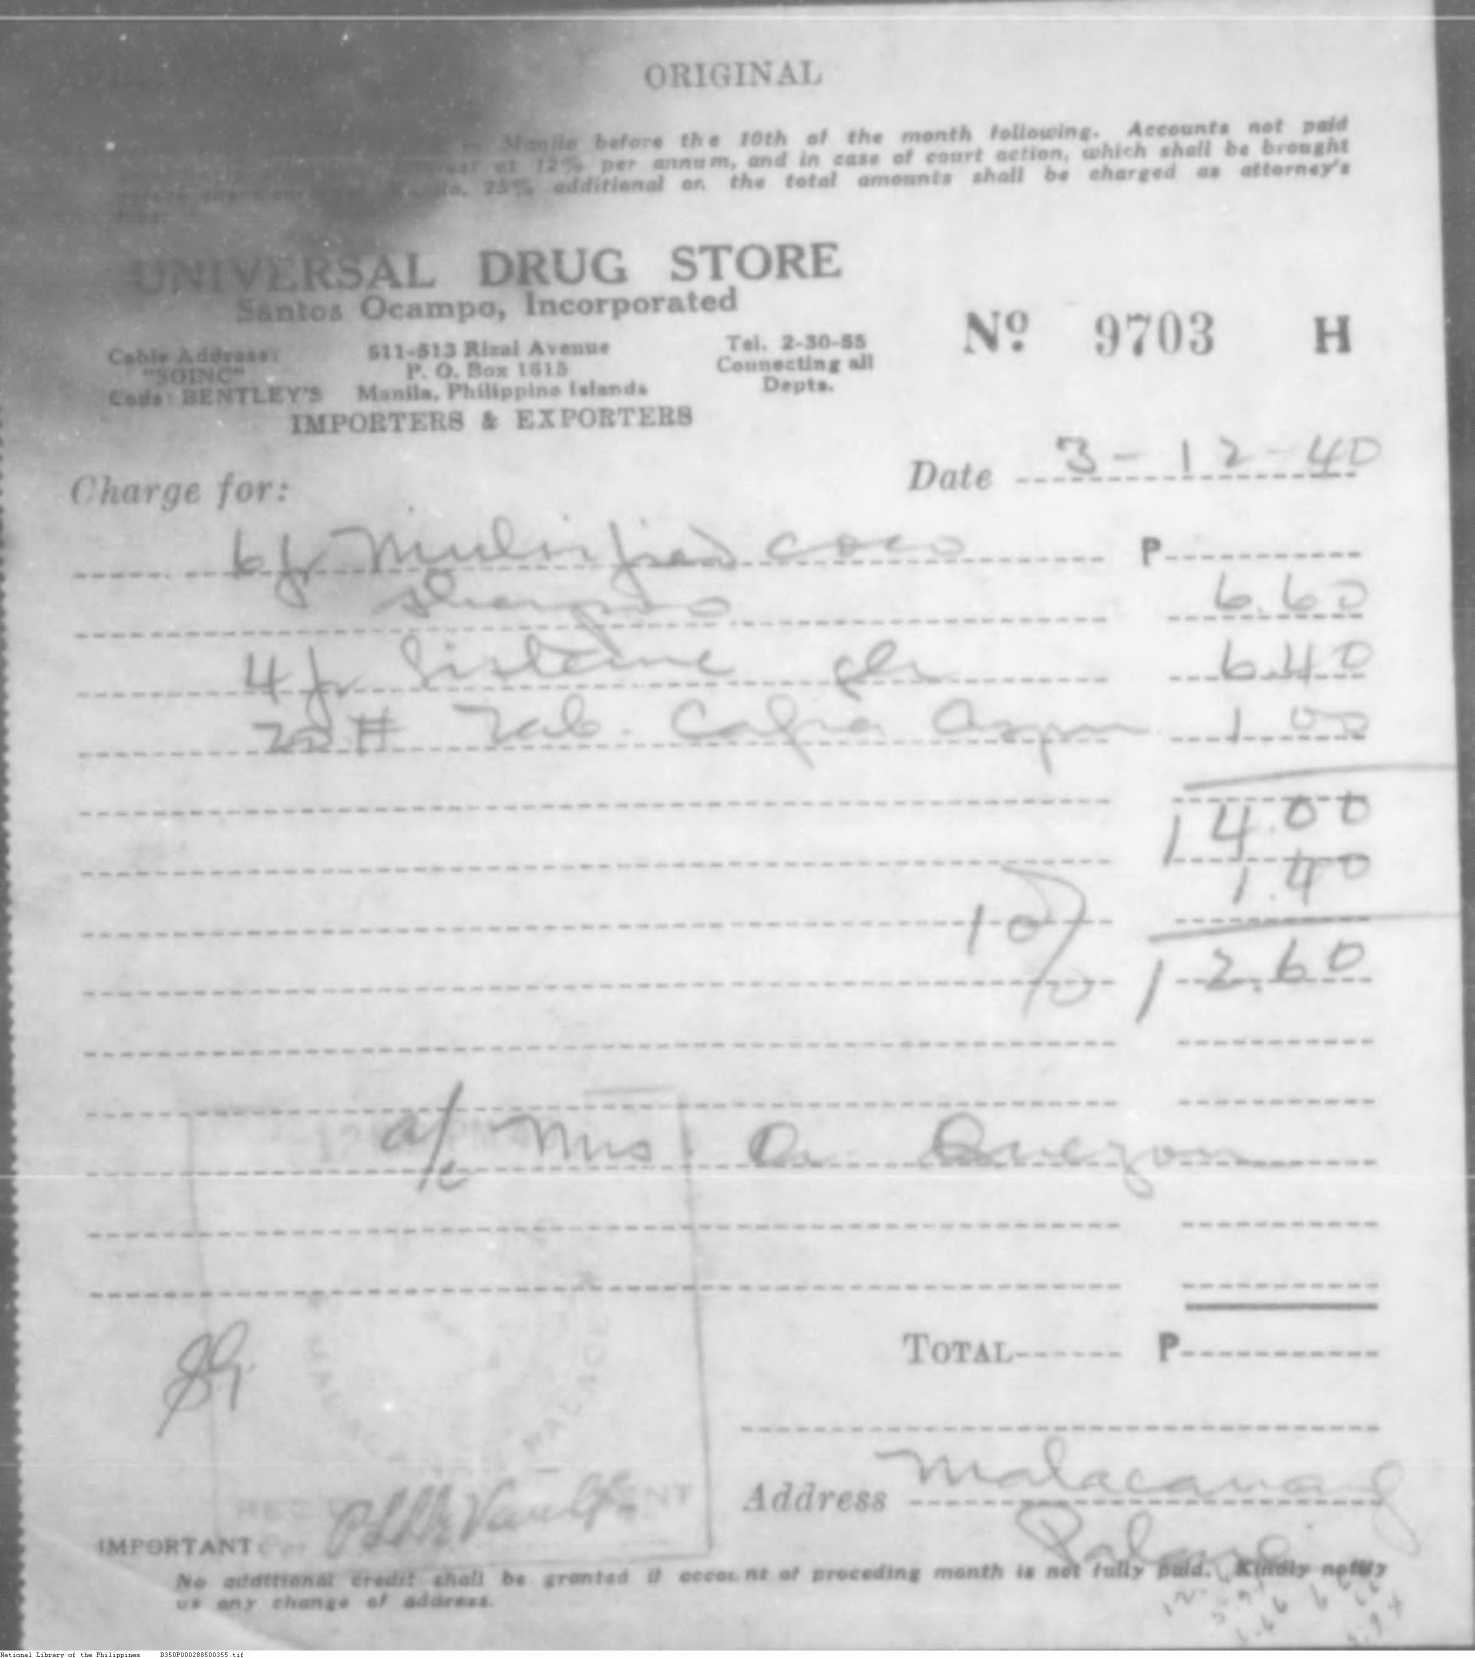 ORIGINAL
Manila before the 10th of the month following. Accounts not paid
at 12% per annum, and in case of court action, which shall be brought
25% additional on the total amounts shall be charged as attorney's
UNIVERSAL DRUG STORE
Santos Ocampo, Incorporated
Nº 9703 H
Cable Address: 511-513 Rizal Avenue Tel. 2-30-55
"SOINC" P. O. Box 1615 Connecting all
Code: BENTLEY'S Manila, Philippine Islands Depts.
IMPORTERS & EXPORTERS
Charge for: Date 3-12-40
6 Mulsified coco P
Shampoo 6.60
4 Listerine 6.40
# Tab. Cafia 1.00
14.00
1.40
10% 12.60
a/c Mrs. A. Quezon
TOTAL P
MALACAÑAN PALACE
Address Malacanang
Palace
IMPORTANT
No additional credit shall be granted if account of preceding month is not fully paid. Kindly notify
us any change of address.
National Library of the Philippines B350P000288500355.tif